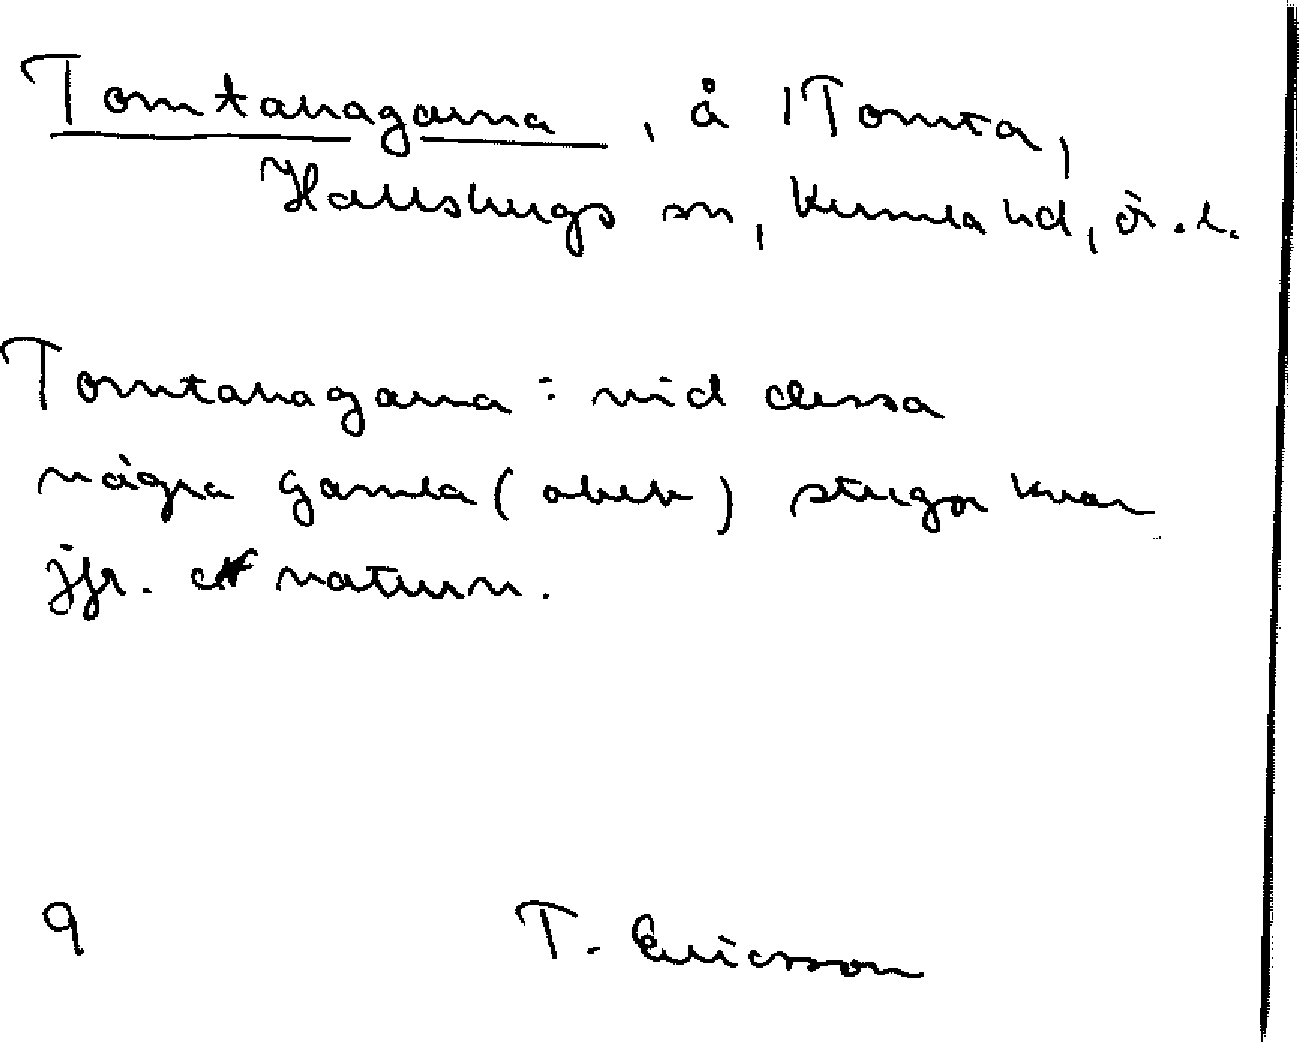 Tomtahagarna, å 1 Tomta,
Hallsbergs sn, Kumla hd, ör.l.
Tomtahagarna: vid dessa
några gamla (obeb) stugor kvar
jfr. naturn.
9 T. Ericsson